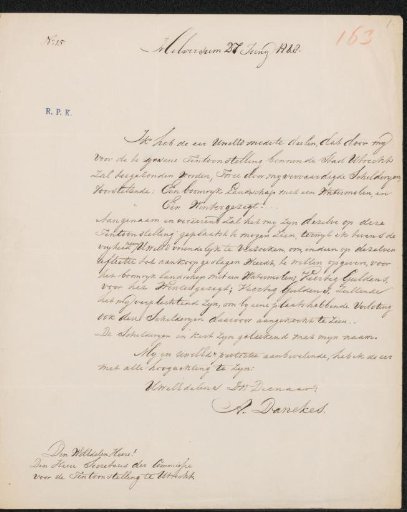 No 25
163
Hilversum 27 Juny 1868.
R. P. K.
Ik heb de eer UwelEd mede te deelen, dat door my
voor de te houdene Tentoonstelling binnen de Stad Utrecht
zal ingezonden worden, Twee door my vervaardigde Schilderyen
Voorstellende: Een boomryk Landschap met een Watermolen en
Een Wintergezigt!
Aangenaam en vereerend zal het my zyn dezelve op deze
Tentoonstelling geplaatst te mogen zien, terwyl ik tevens de
vryheid neem UwEd vriendelyk te verzoeken om indien op dezelven
reflectie tot aankoop geslagen wierdt, te willen opgeven, voor
het boomryk landschap met een Watermolen, Guldens,
voor het Wintergezigt, Guldens, Zullende
het my verplichtend zyn, om by eene plaatshebbende Verloting
ook deze Schilderyen daarvoor aangekocht te zien.
De Schilderyen in kist zyn geteekend met myn naam.
My in UwelEd protectie aanbevelende, heb ik de eer
met alle hoogachting te zyn:
UwelEdelens Dr. Dienaar
A. Danekes.
Den WelEdelen Heere!
Den Heere Secretaris der Commissie
voor de Tentoonstelling te Utrecht.